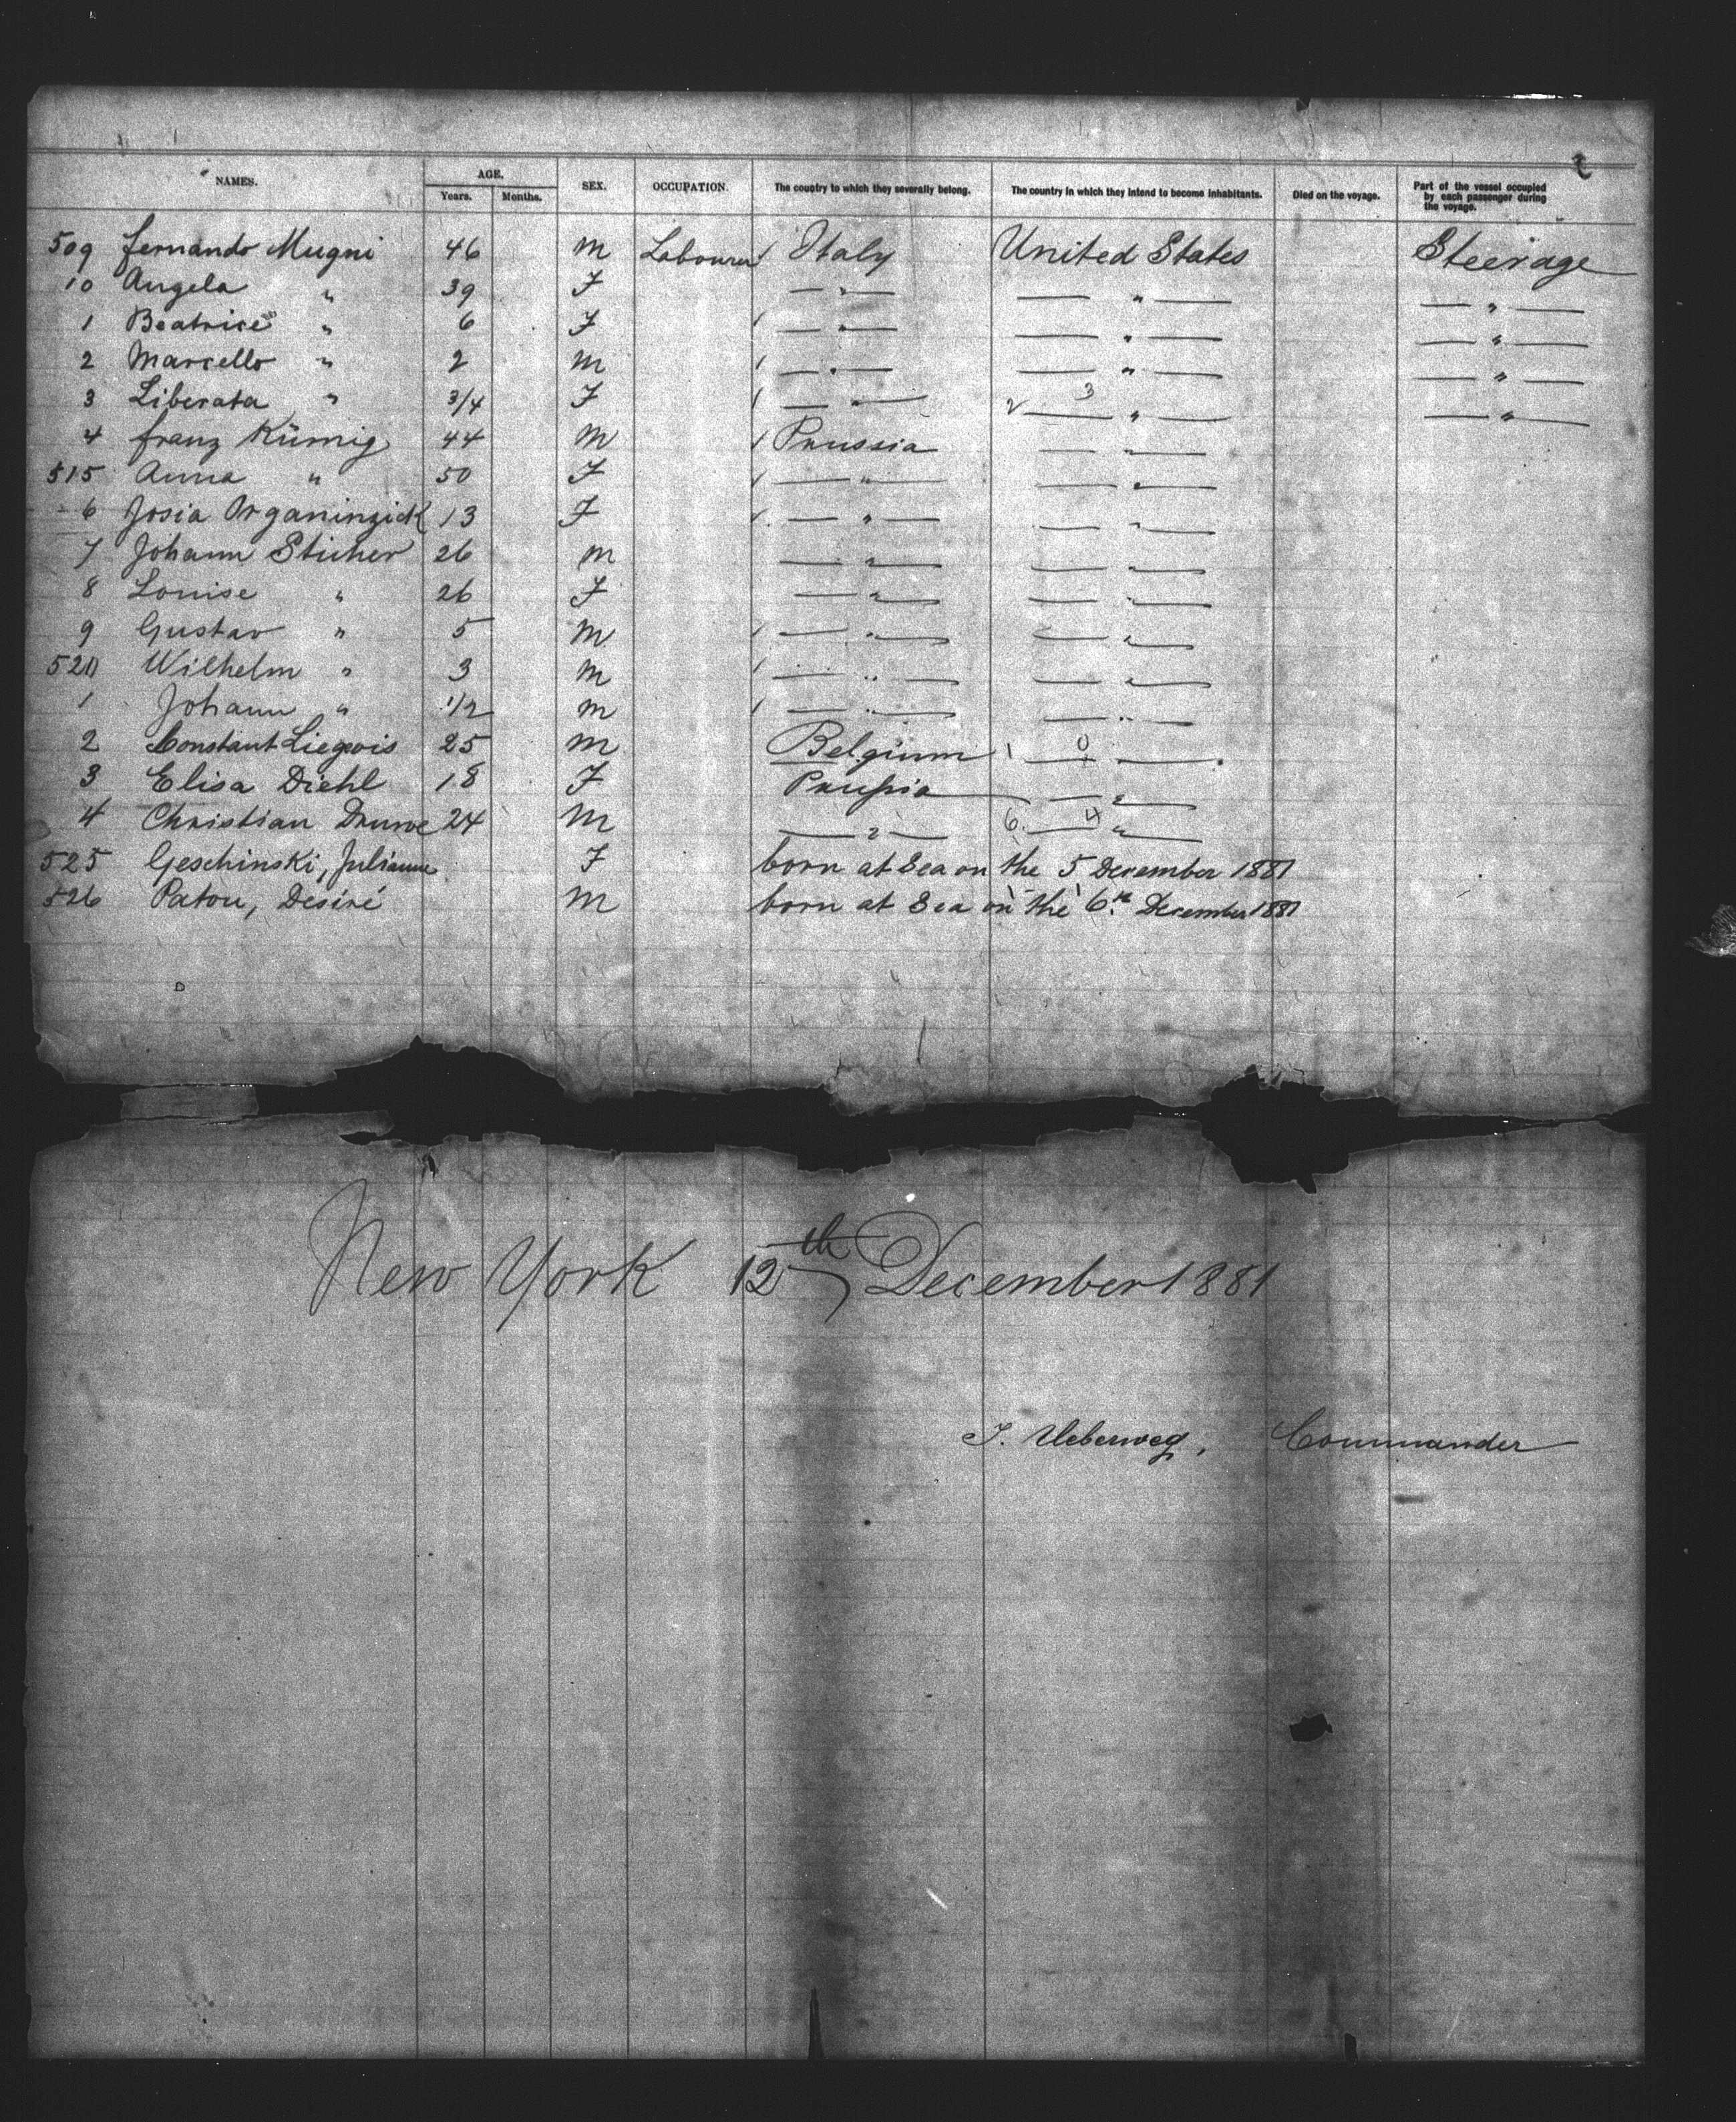 NAMES. AGE. Years. Months. SEX. OCCUPATION. The country to which they severally belong. The country in which they intend to become inhabitants. Died on the voyage. Part of the vessel occupied by each passenger during the voyage.
509 Fernando Mugni 46 M Labourer Italy United States Steerage
10 Angela " 39 F — " — — " — — " —
1 Beatrice " 6 F — " — — " — — " —
2 Marcello " 2 M — " — — " — — " —
3 Liberata " 3/4 F — " — 2 3 — " — — " —
4 Franz Kürnig 44 M Prussia — " —
515 Anna " 50 F — " — — " —
6 Josia Organinzick 13 F — " — — " —
7 Johann Sticher 26 M — " — — " —
8 Louise " 26 F — " — — " —
9 Gustav " 5 M — " — — " —
520 Wilhelm " 3 M — " — — " —
1 Johann " 1/2 M — " — — " —
2 Constant Liegeois 25 M Belgium 1 0 — " —
3 Elisa Diehl 18 F Prussia — " —
4 Christian Druwe 24 M — " — 6 4 — " —
525 Geschinski, Julianne F born at Sea on the 5 December 1881
526 Patou, Desiré M born at Sea on the 6th December 1881
New York 12th December 1881
J. Ueberweg, Commander